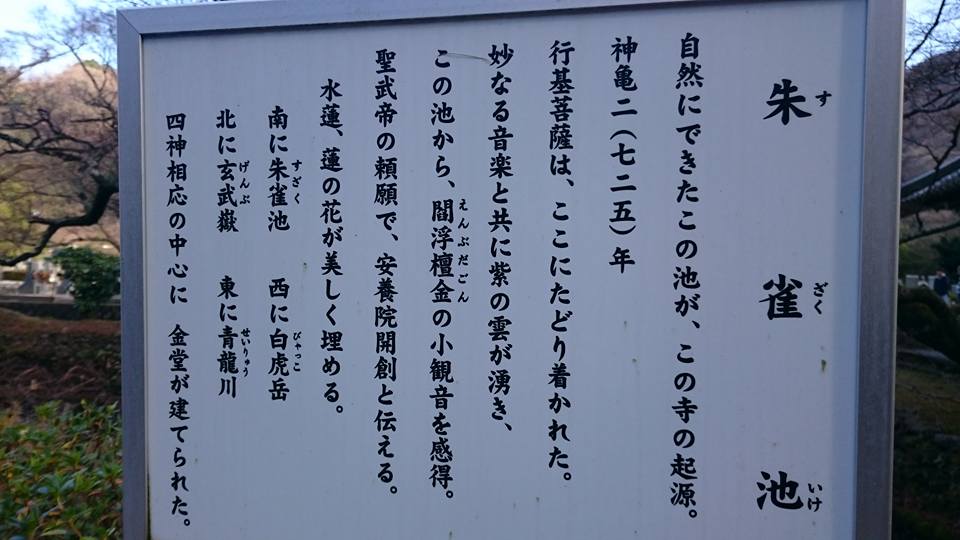 朱雀池
すざくいけ
自然にできたこの池が、この寺の起源。
神亀二（七二五）年
行基菩薩は、ここにたどり着かれた。
妙なる音楽と共に紫の雲が湧き、
この池から、閻浮檀金の小観音を感得。
えんぶだごん
聖武帝の頼願で、安養院開創と伝える。
水蓮、蓮の花が美しく埋める。
南に朱雀池　西に白虎岳
すざく　びゃっこ
北に玄武嶽　東に青龍川
げんぶ　せいりゅう
四神相応の中心に　金堂が建てられた。